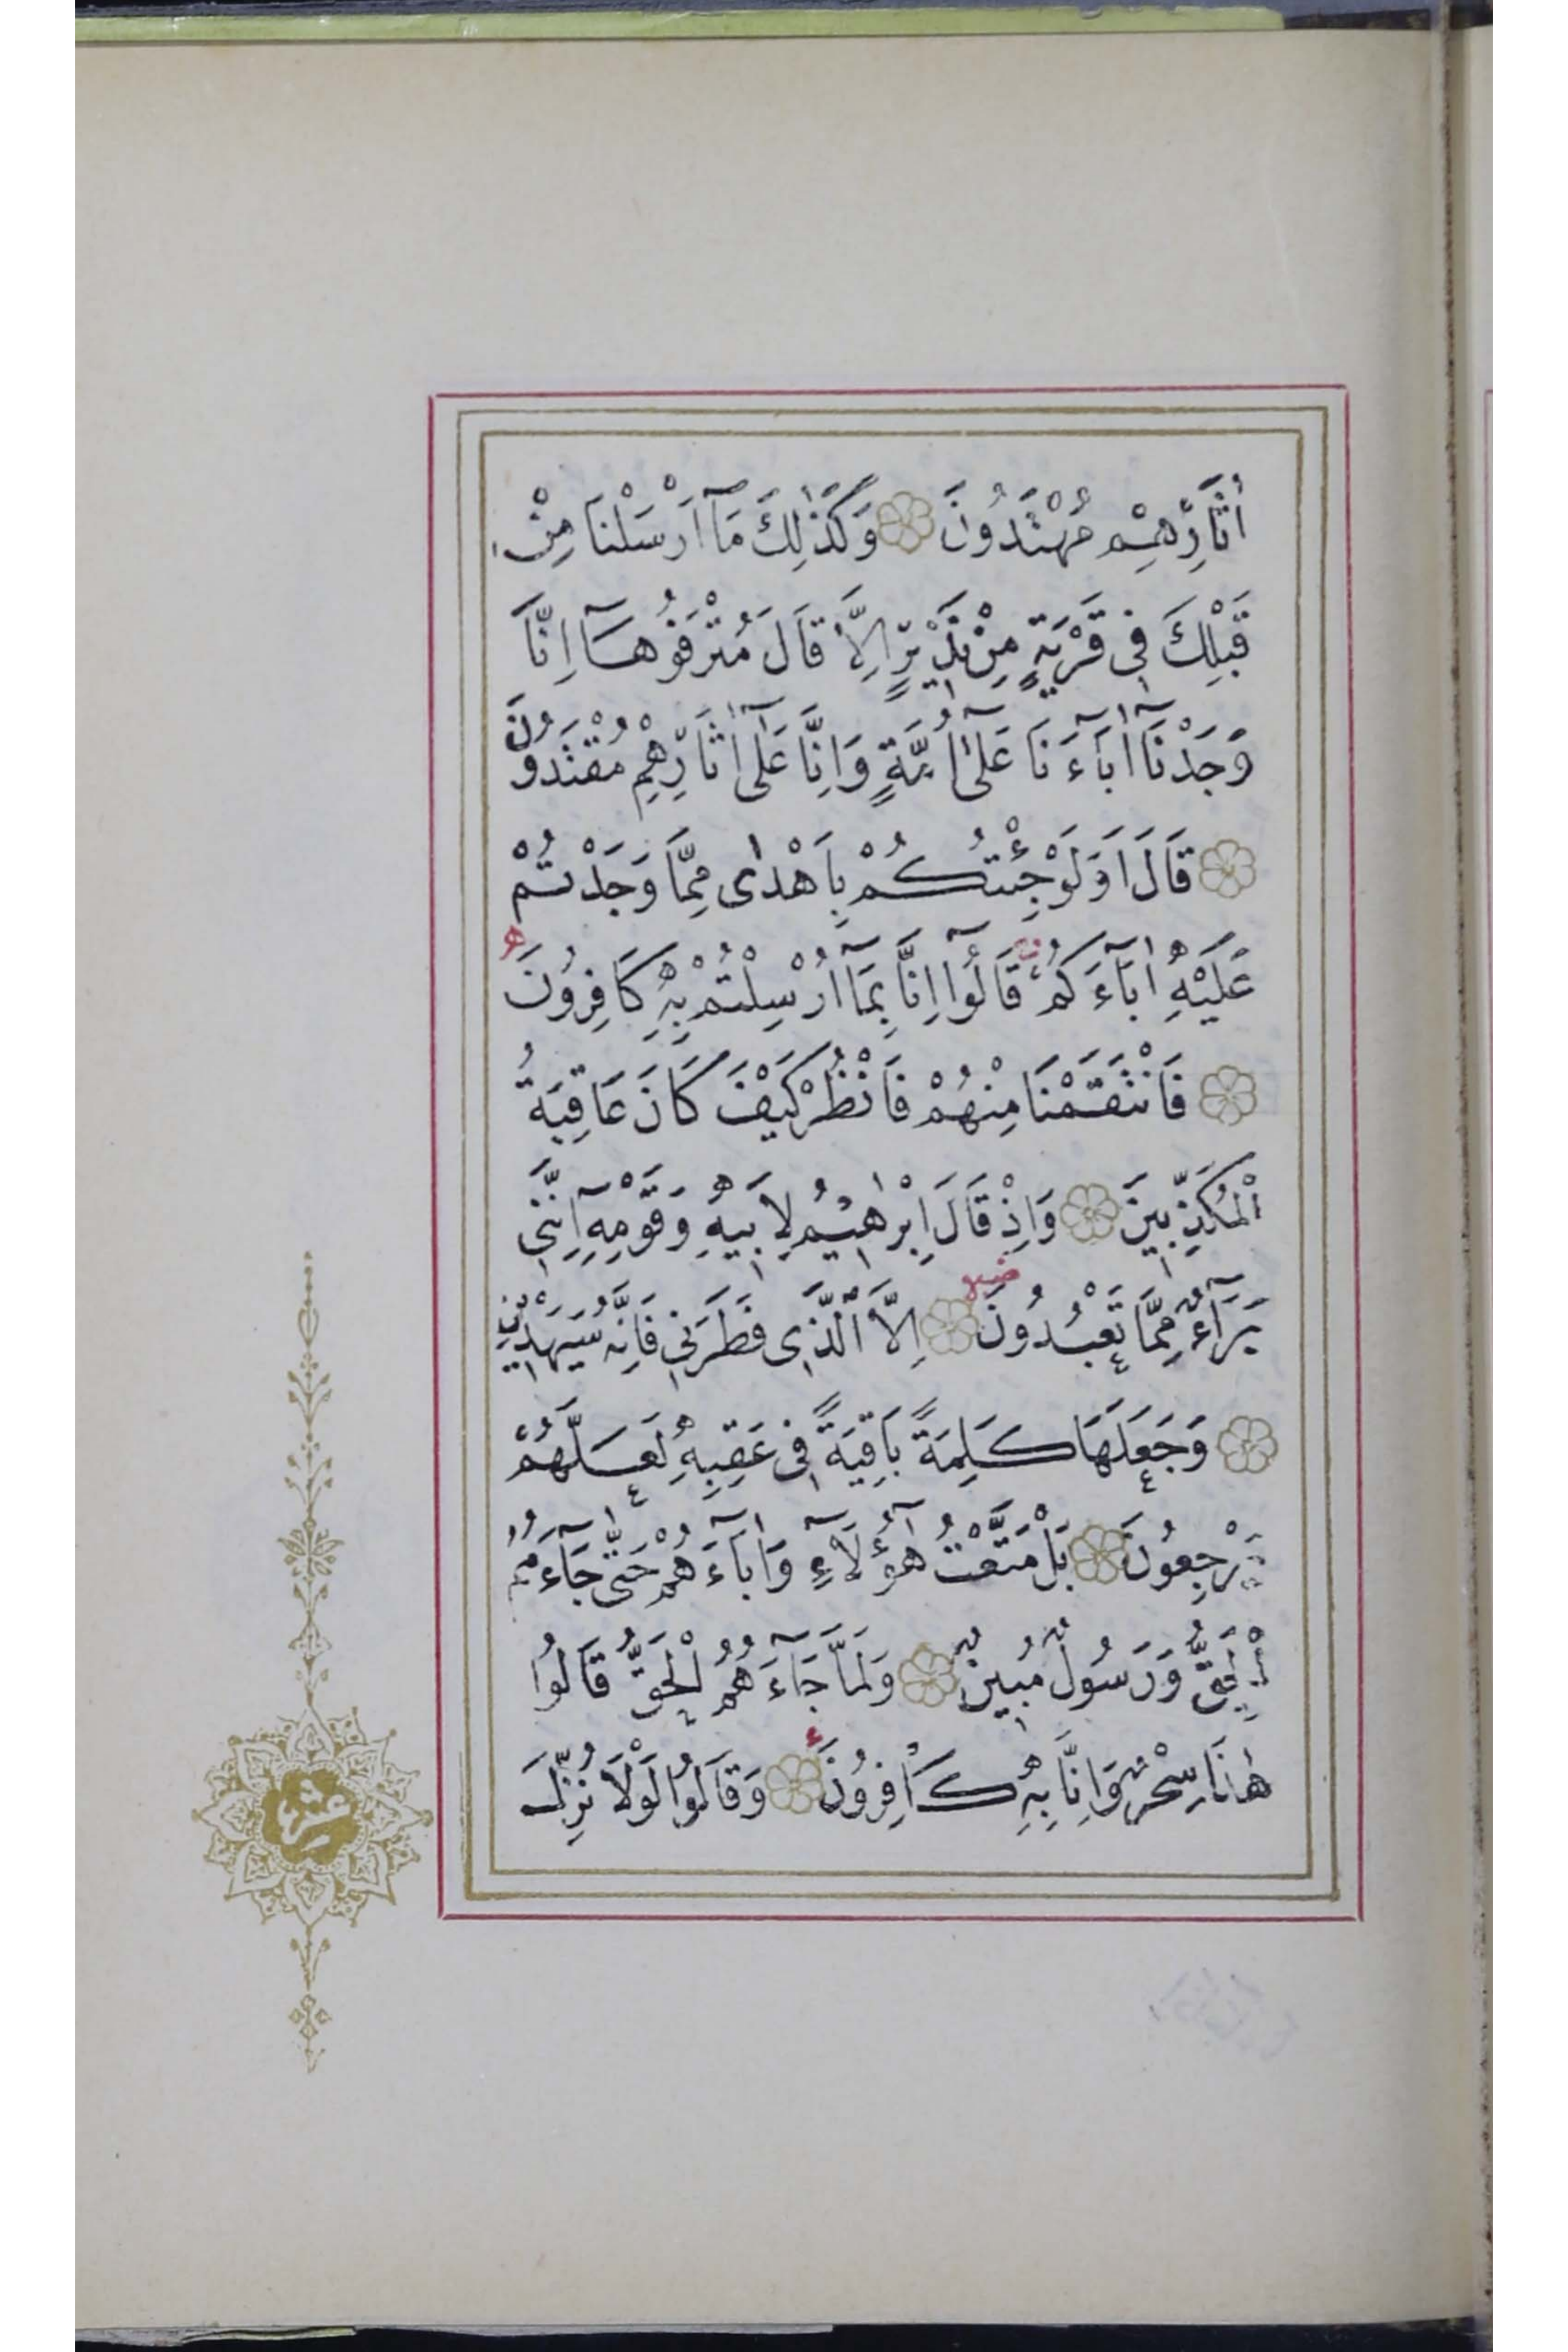 اٰثَارِهِمْ مُهْتَدُونَ وَكَذٰلِكَ مَٓا اَرْسَلْنَا مِنْ
قَبْلِكَ فٖى قَرْيَةٍ مِنْ نَذٖيرٍ اِلَّا قَالَ مُتْرَفُوهَٓا اِنَّا
وَجَدْنَٓا اٰبَٓاءَنَا عَلٰٓى اُمَّةٍ وَاِنَّا عَلٰٓى اٰثَارِهِمْ مُقْتَدُونَ
قَالَ اَوَلَوْ جِئْتُكُمْ بِاَهْدٰى مِمَّا وَجَدْتُمْ
عَلَيْهِ اٰبَٓاءَكُمْ قَالُٓوا اِنَّا بِمَٓا اُرْسِلْتُمْ بِهٖ كَافِرُونَ
فَانْتَقَمْنَا مِنْهُمْ فَانْظُرْ كَيْفَ كَانَ عَاقِبَةُ
الْمُكَذِّبٖينَ وَاِذْ قَالَ اِبْرٰهٖيمُ لِاَبٖيهِ وَقَوْمِهٖٓ اِنَّنٖى
بَرَٓاءٌ مِمَّا تَعْبُدُونَ اِلَّا الَّذٖى فَطَرَنٖى فَاِنَّهُ سَيَهْدٖينِ
وَجَعَلَهَا كَلِمَةً بَاقِيَةً فٖى عَقِبِهٖ لَعَلَّهُمْ
يَرْجِعُونَ بَلْ مَتَّعْتُ هٰٓؤُلَٓاءِ وَاٰبَٓاءَهُمْ حَتّٰى جَٓاءَهُمُ
الْحَقُّ وَرَسُولٌ مُبٖينٌ وَلَمَّا جَٓاءَهُمُ الْحَقُّ قَالُوا
هٰذَا سِحْرٌ وَاِنَّا بِهٖ كَافِرُونَ وَقَالُوا لَوْلَا نُزِّلَ
عشر